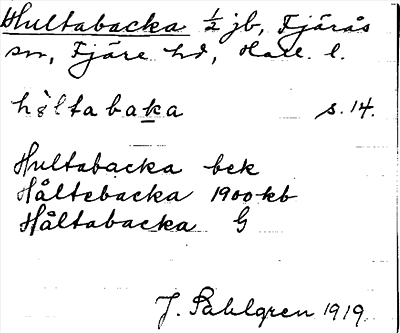 Hultabacka ½ jb, Fjärås
sn, Fjäre hd, Hall. l.
håltabaka s. 14.
Hultabacka bek
Håltebacka 1900 kb
Håltabacka G
J. Sahlgren 1919